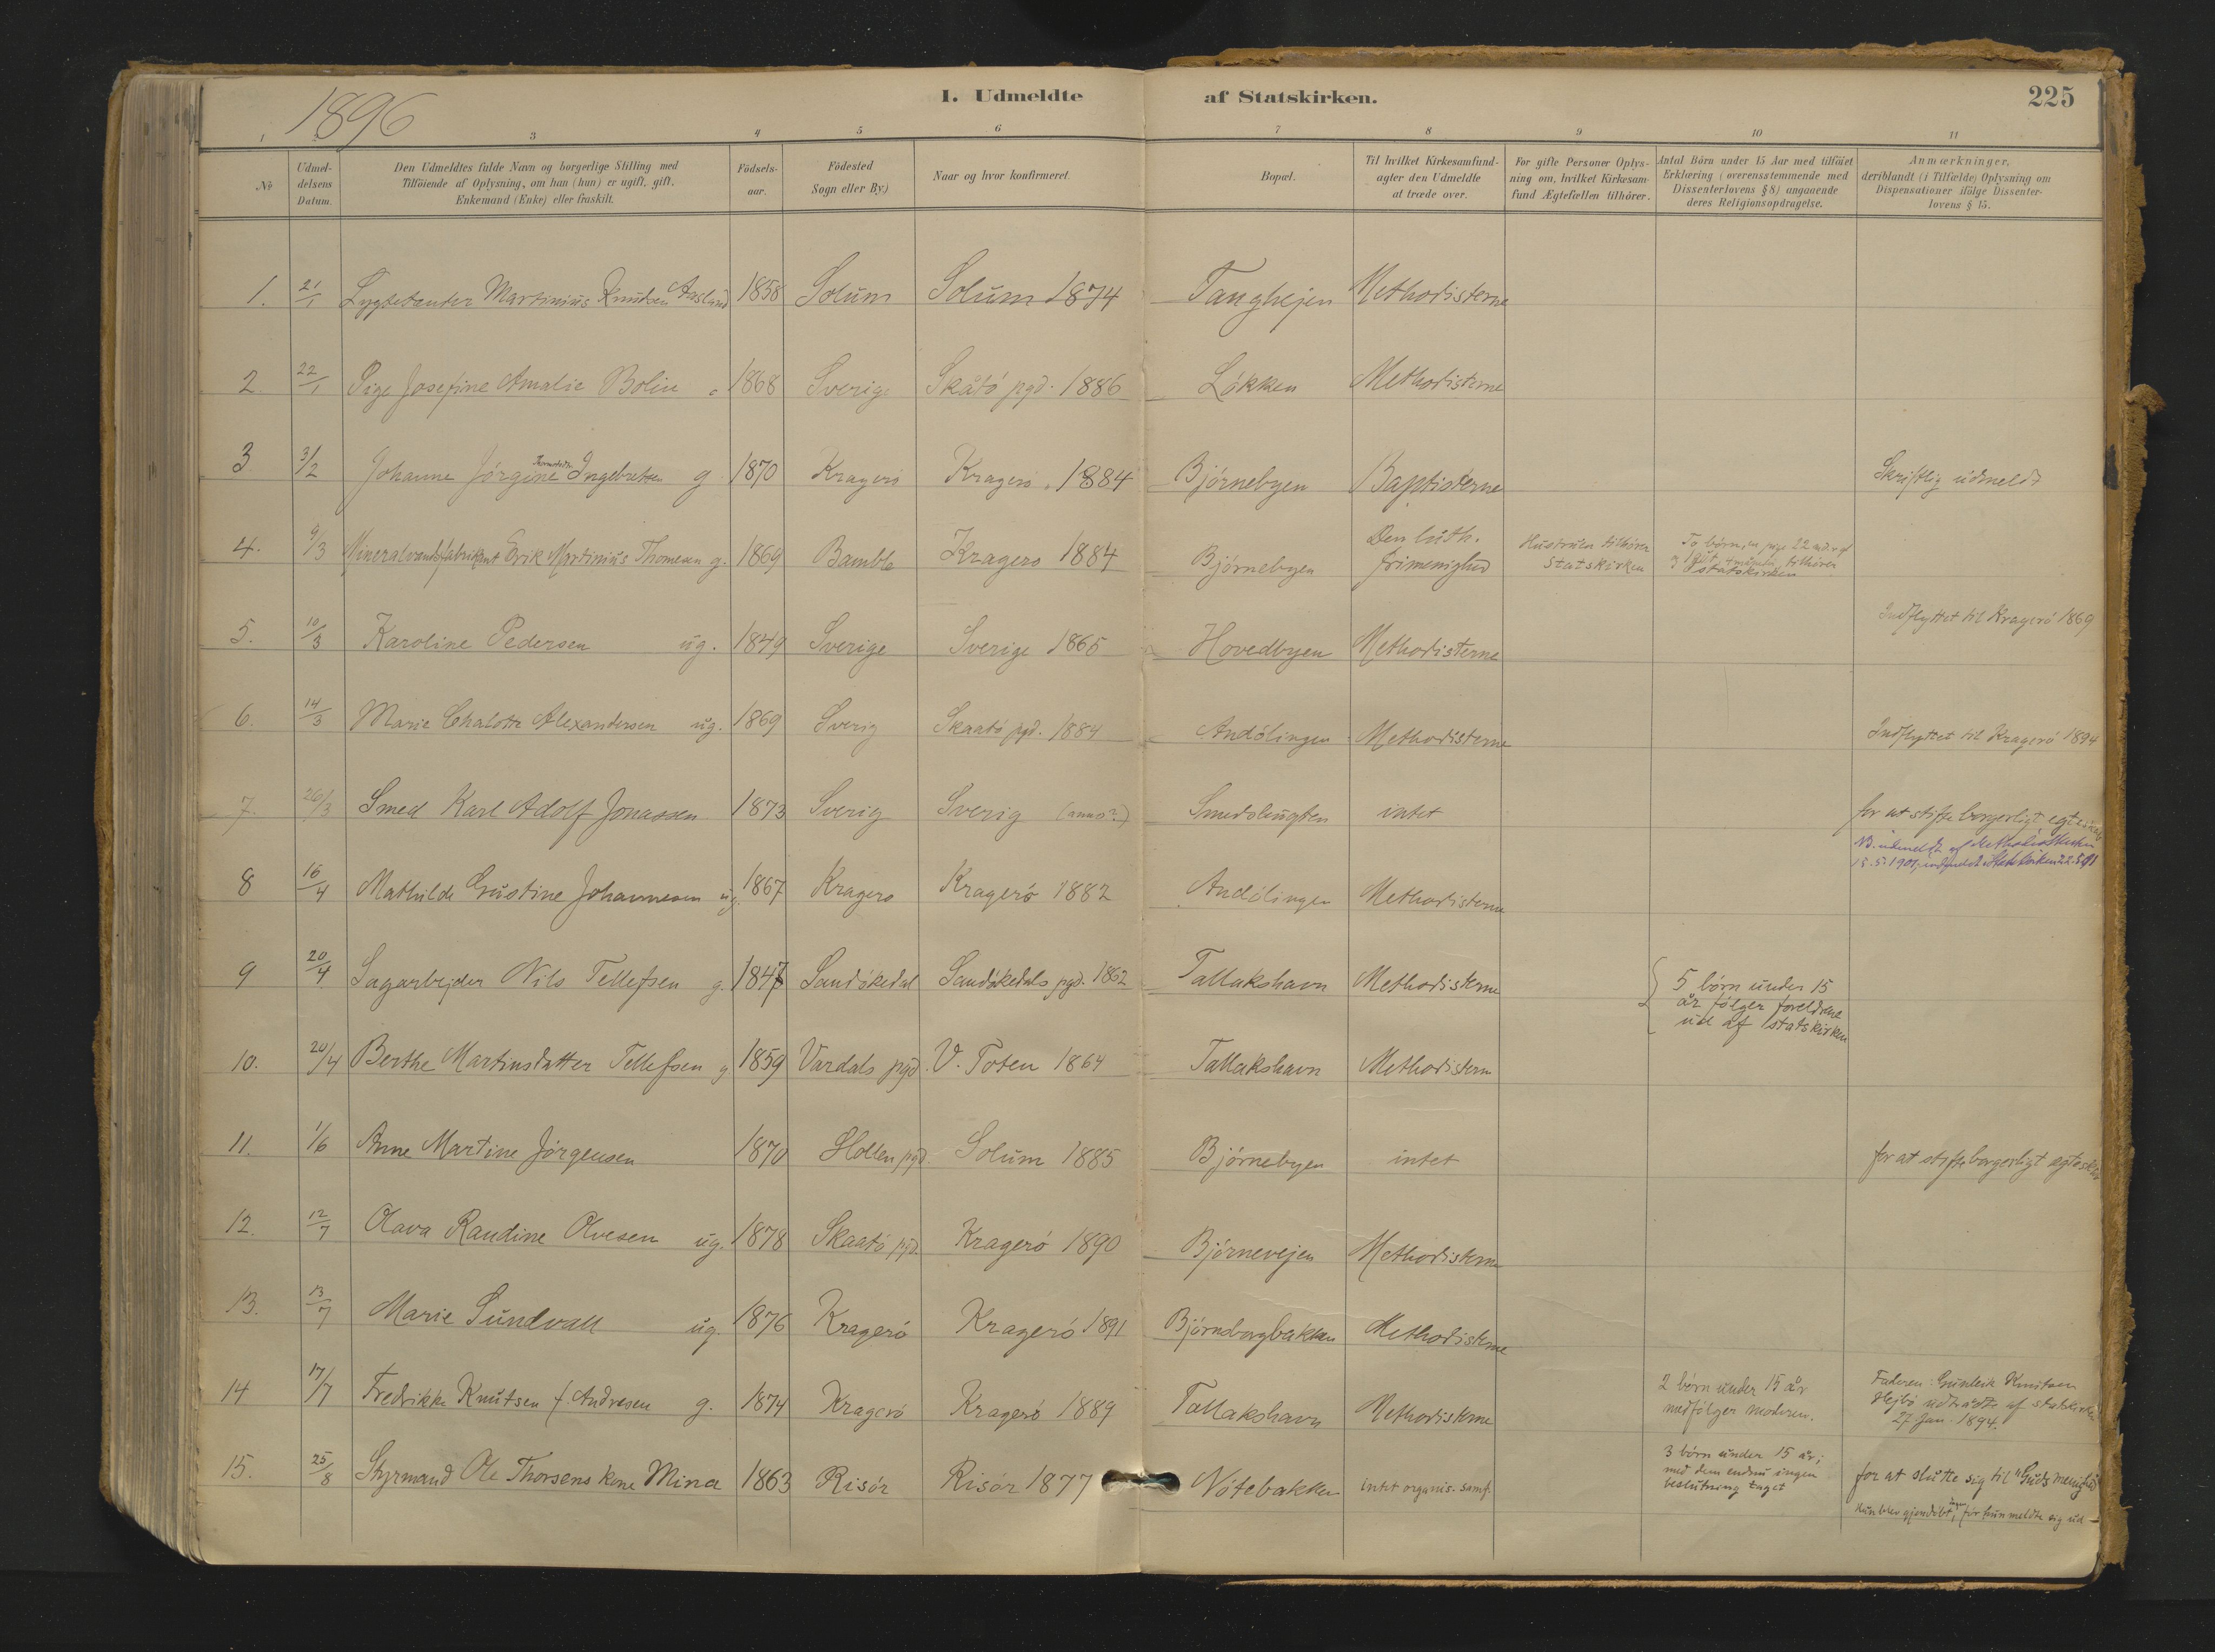 1896
I. Udmeldte af Statskirken.
225
1 3 4 5 6 7 8 9 10 11
No
Udmel-
delsens
Datum.
Den Udmeldtes fulde Navn og borgerlige Stilling med
Tilföiende af Oplysning, om han (hun) er ugift, gift,
Enkemand (Enke) eller fraskilt.
Födsels-
aar.
Födested
Sogn eller By.)
Naar og hvor konfirmeret.
Bopæl.
Til hvilket Kirkesamfund-
agter den Udmeldte
at træde over.
For gifte Personer Oplys-
ning om, hvilket Kirkesam-
fund Ægtefællen tilhörer.
Antal Börn under 15 Aar med tilföiet
Erklæring (overensstemmende med
Dissenterlovens § 8) angaaende
deres Religionsopdragelse.
Anmærkninger,
deriblandt (i Tilfælde) Oplysning om
Dispensationer ifölge Dissenter-
lovens § 15.
1. 21/1 Lygtetænder Martinius Knutsen Aasland 1858 Solum Solum 1874 Tanghejen Methodisterne
2. 22/1 Pige Josefine Amalie Bolin 1868 Sverige Skåtö pgd. 1886 Lökken Methodisterne
3 3/2 Johanne Jörgine Ingebretsen g 1870 Kragerö Kragerö 1884 Björnebyen Baptisterne Skriftlig udmeldt
4. 9/3 Mineralvandsfabrikant Erik Martinius Thomesen g. 1869 Bamble Kragerö 1884 Björnebyen Den luth.
frimenighed
Hustruen tilhörer
Statskirken
To börn, en pige 22 mdr gl
og 1 gut, 4 måneder, tilhörer
statskirken
5. 10/3 Karoline Pedersen ug. 1849 Sverige Sverige 1865 Hovedbyen Methodisterne Indflyttet til Kragerö 1869
6. 14/3 Marie Chalotte Alexandersen ug. 1869 Sverig Skaatö pgd. 1884 Andölingen Methodisterne Indflyttet til Kragerö 1894
7. 26/3 Smed Karl Adolf Jonassen 1873 Sverig Sverig (anno?) Smedsbugten intet for at stifte borgerligt
NB. udmeldt af Methodistkirken
15.5.1901, indmeldt i Statskirken
8 16/4 Mathilde Gustine Johannesen ug. 1867 Kragerö Kragerö 1882 Andölingen Methodisterne
9 20/4 Sagarbejder Nils Tellefsen g. 1847 Sandökedal Sandökedals pgd. 1862 Tallakshavn Methodisterne 5 börn under 15
år fölger foreldrene
ud af statskirken
10. 20/4 Berthe Martinsdatter Tellefsen g 1859 Vardals pgd. V. Toten 1864 Tallakshavn Methodistern
11. 1/6 Anne Martine Jörgensen 1870 Hollen pgd. Solum 1885 Björnebyen intet for at stifte borgerligt egteskab
12. 12/7 Olava Randine Olvesen ug. 1878 Skaatö pgd. Kragerö 1890 Björnevejen Methodistern
13. 13/7 Marie Sundvall ug. 1876 Kragerö Kragerö 1891 Björnsborgbakken Methodisterne
14 17/7 Fredrikke Knutsen f. Andresen g. 1874 Kragerö Kragerö 1889 Tallakshavn Methodisterne 2 börn under 15 år
medfölger moderen.
Faderen: Gunleik Knutsen
Hejbö udtrådte af statskirken
27 jan. 1894.
15. 25/8 Styrmand Ole Thorsens kone Mina 1863 Risör Risör 1877 Nötebakken intet organis. samf. 3 börn under 15 år;
med dem endnu ingen
beslutning taget
for at slutte sig til "Guds menighed"
Hun blev gjendöbt, för hun meldte sig ud